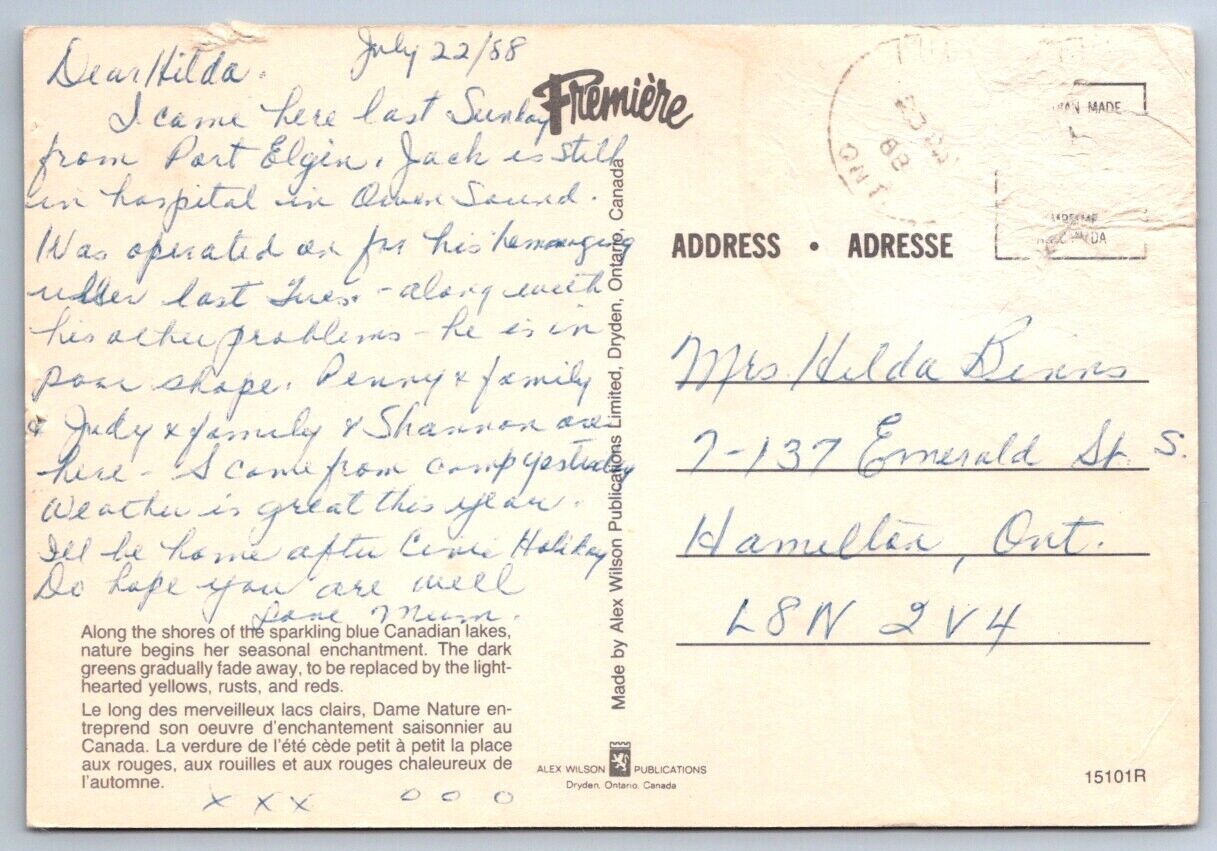 Dear Hilda. July 22/88
I came here last Sunday
from Port Elgin. Jack is still
in hospital in Owen Sound.
Was operated on for his hemorraging
ulser last Tues. - along with
his other problems - he is in
poor shape. Penny & family
& Judy & family & Shannon are
here - I came from camp yesterday
Weather is great this year.
I'll be home after Civic Holiday
Do hope you are well
Love Mum.
Along the shores of the sparkling blue Canadian lakes,
nature begins her seasonal enchantment. The dark
greens gradually fade away, to be replaced by the light-
hearted yellows, rusts, and reds.
Le long des merveilleux lacs clairs, Dame Nature en-
treprend son oeuvre d'enchantement saisonnier au
Canada. La verdure de l'été cède petit à petit la place
aux rouges, aux rouilles et aux rouges chaleureux de
l'automne.
x x x o o o
Première
Made by Alex Wilson Publications Limited, Dryden, Ontario, Canada
ALEX WILSON PUBLICATIONS
Dryden, Ontario, Canada
ONT
88
MADE
ADDRESS • ADRESSE
Mrs. Hilda Binns
7-137 Emerald St. S.
Hamilton, Ont.
L8N 2V4
15101R